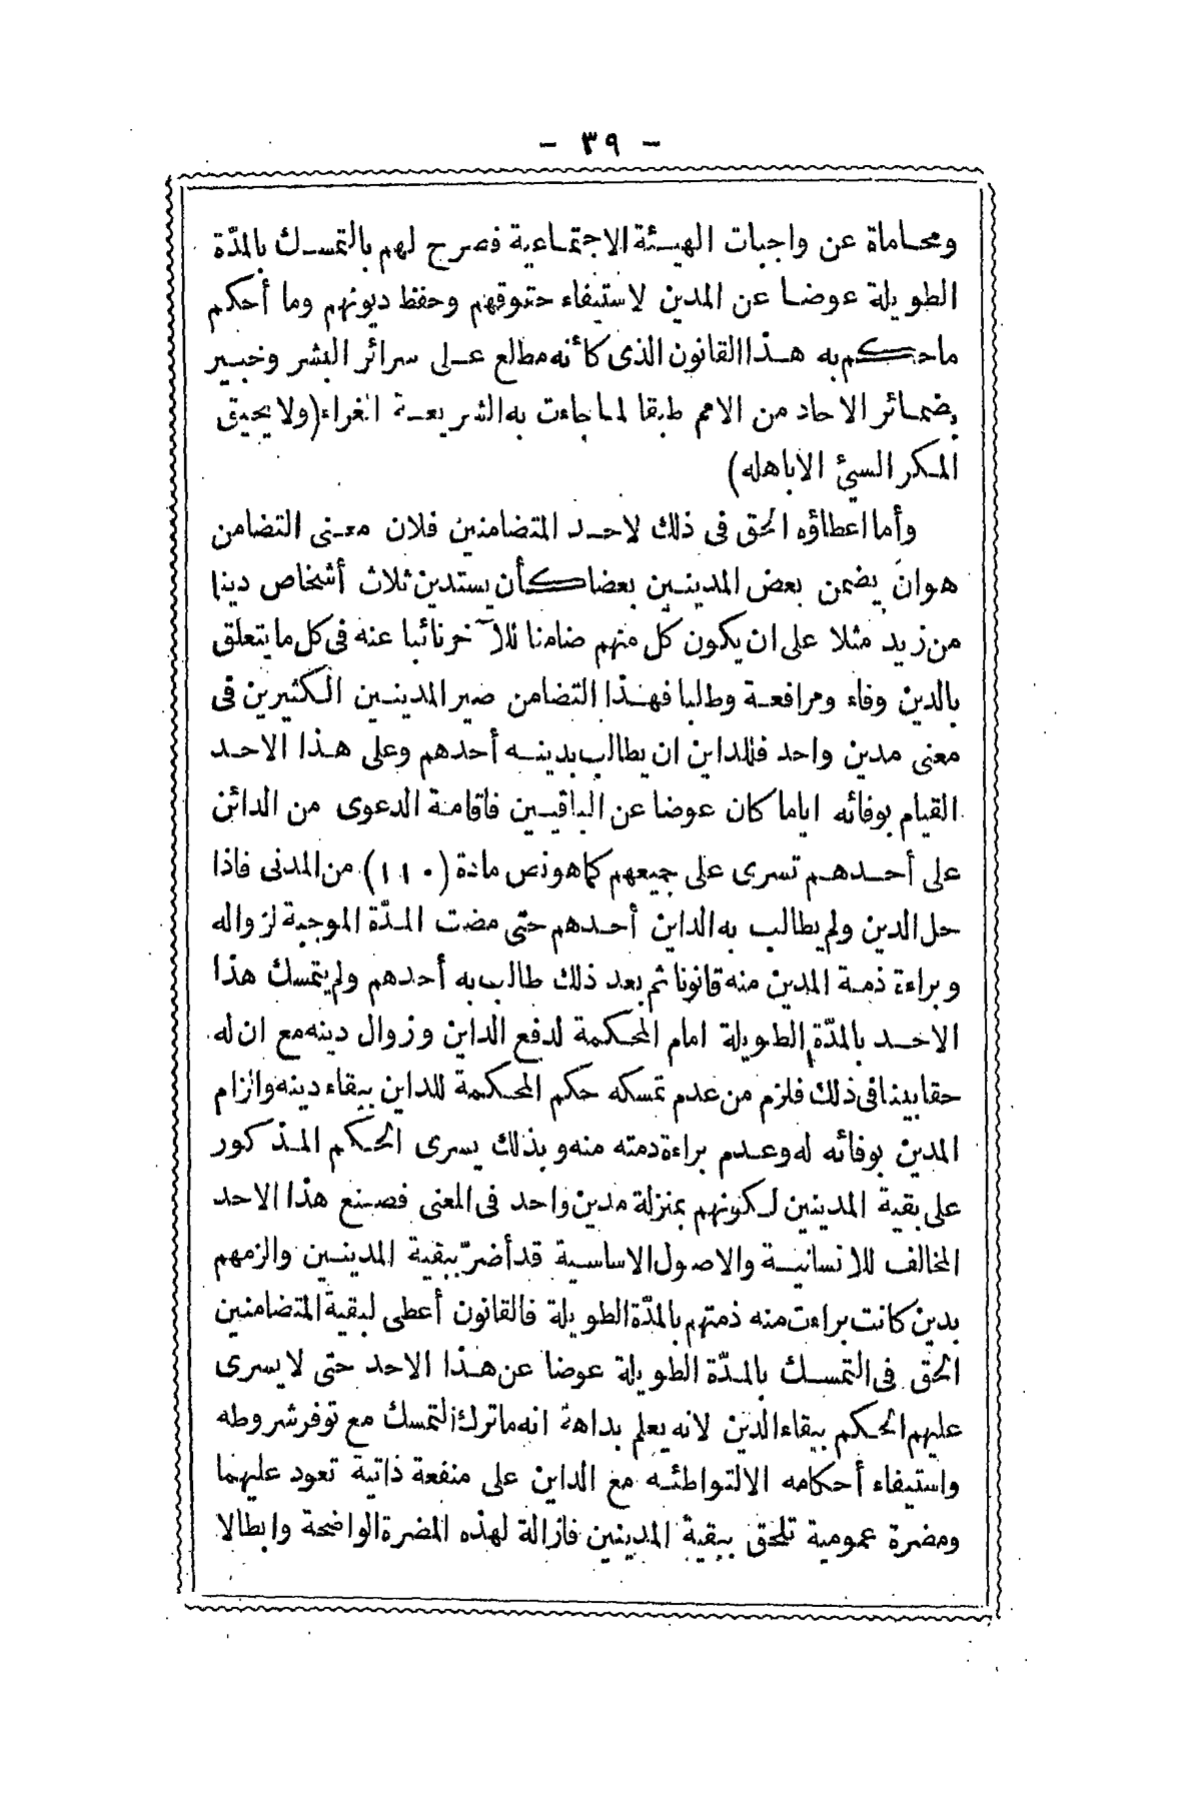 - ٣٩ -
ومحاماة عن واجبات الهيئة الاجتماعية فصرح لهم بالتمسك بالمدّة
الطويلة عوضا عن المدين لاستيفاء حقوقهم وحفظ ديونهم وما أحكم
ماحكم به هذا القانون الذى كأنه مطلع على سرائر البشر وخبير
بضمائر الاحاد من الامم طبقا لما جاءت به الشريعة الغراء (ولا يحيق
المكر السيئ الا باهله)
وأما اعطاؤه الحق فى ذلك لاحد المتضامنين فلان معنى التضامن
هو ان يضمن بعض المدينين بعضا كأن يستدين ثلاث أشخاص دينا
من زيد مثلا على ان يكون كل منهم ضامنا للآخر نائبا عنه فى كل ما يتعلق
بالدين وفاء ومرافعة وطلبا فهذا التضامن صير المدينين الكثيرين فى
معنى مدين واحد فللداين ان يطالب بدينه أحدهم وعلى هذا الاحد
القيام بوفائه اياما كان عوضا عن الباقيين فاقامة الدعوى من الدائن
على أحدهم تسرى على جميعهم كما هو نص مادة (١١٠) من المدنى فاذا
حل الدين ولم يطالب به الداين أحدهم حتى مضت المدّة الموجبة لزواله
وبراءة ذمة المدين منه قانونا ثم بعد ذلك طالب به أحدهم ولم يتمسك هذا
الاحد بالمدّة الطويلة امام المحكمة لدفع الداين وزوال دينه مع ان له
حقا بينا فى ذلك فلزم من عدم تمسكه حكم المحكمة للداين ببقاء دينه والزام
المدين بوفائه له وعدم براءة دمته منه وبذلك يسرى الحكم المذكور
على بقية المدينين لكونهم بمنزلة مدين واحد فى المعنى فصنع هذا الاحد
المخالف للانسانية والاصول الاساسية قد أضرّ ببقية المدينين والزمهم
بدين كانت براءت منه ذمتهم بالمدّة الطويلة فالقانون أعطى لبقية المتضامنين
الحق فى التمسك بالمدّة الطويلة عوضا عن هذا الاحد حتى لا يسرى
عليهم الحكم ببقاء الدين لانه يعلم بداهة انه ما ترك التمسك مع توفر شروطه
واستيفاء أحكامه الا لتواطئه مع الداين على منفعة ذاتية تعود عليهما
ومضرة عمومية تلحق ببقية المدينين فازالة لهذه المضرة الواضحة وابطالا